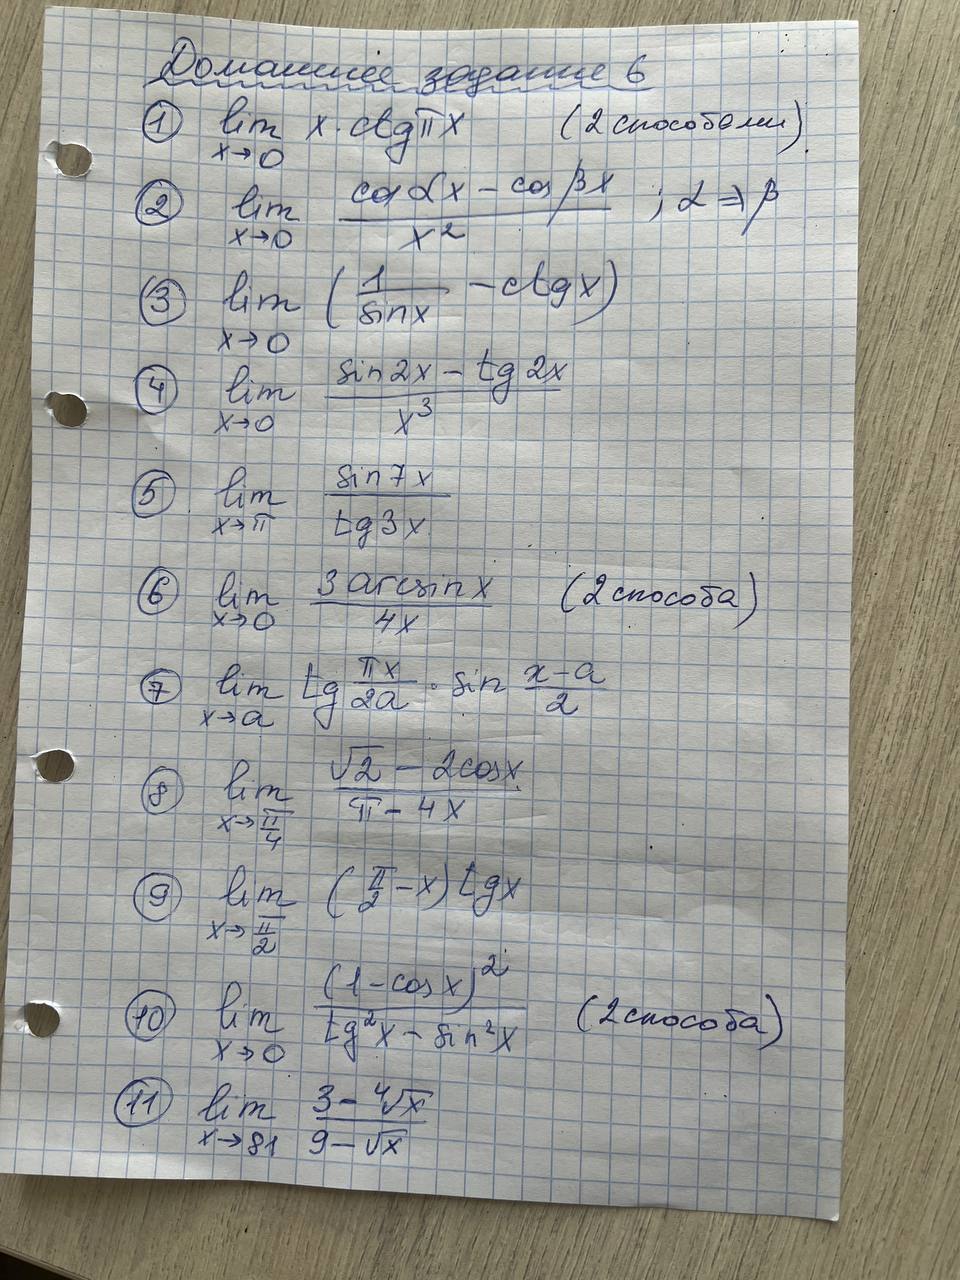 Домашнее задание 6
① lim x→0 x·ctg πx (2 способами)
② lim x→0 (cos αx − cos βx)/x² ; α ⇒ β
③ lim x→0 (1/sin x − ctg x)
④ lim x→0 (sin 2x − tg 2x)/x³
⑤ lim x→π sin 7x/tg 3x
⑥ lim x→0 3 arcsin x/4x (2 способа)
⑦ lim x→a tg πx/2a · sin (x−a)/2
⑧ lim x→π/4 (√2 − 2cos x)/(π − 4x)
⑨ lim x→π/2 (π/2 − x) tg x
⑩ lim x→0 (1 − cos x)²/(tg²x − sin²x) (2 способа)
⑪ lim x→81 (3 − ⁴√x)/(9 − √x)